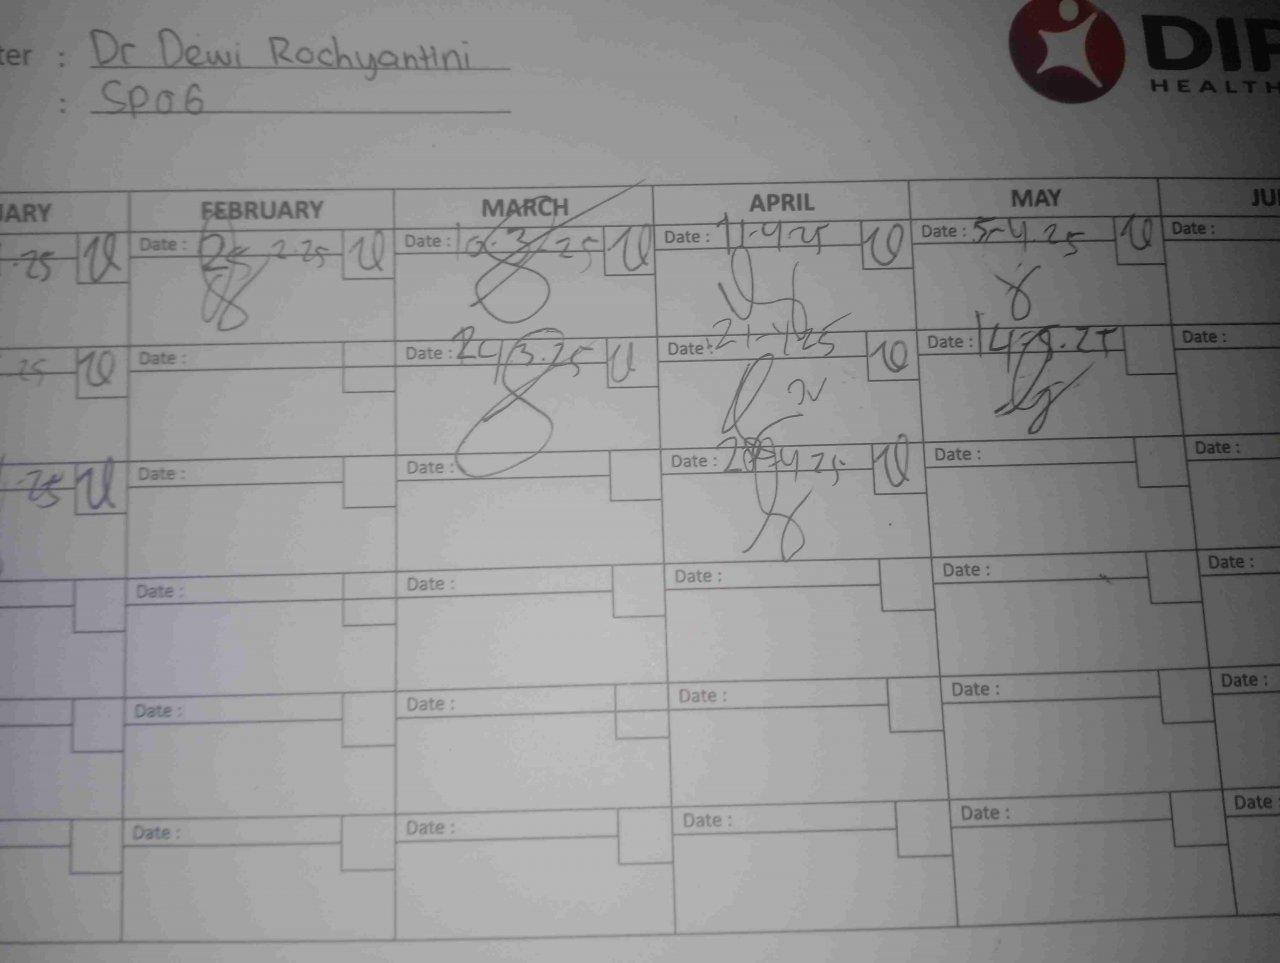 ter : Dr Dewi Rochyantini
: SPOG
DIP
HEALTH
UARY FEBRUARY MARCH APRIL MAY JU
-25 Date : 25 2-25 Date : 10-3/25 Date : 11-4-25 Date : 5-4.25 Date :
25 Date : Date : 24/3.25 Date : 21-4-25 Date : 14-5.25 Date :
-25 Date : Date : Date : 28-4 25 Date :
Date : Date : Date : Date : Date :
Date : Date : Date : Date : Date :
Date : Date : Date : Date : Date :